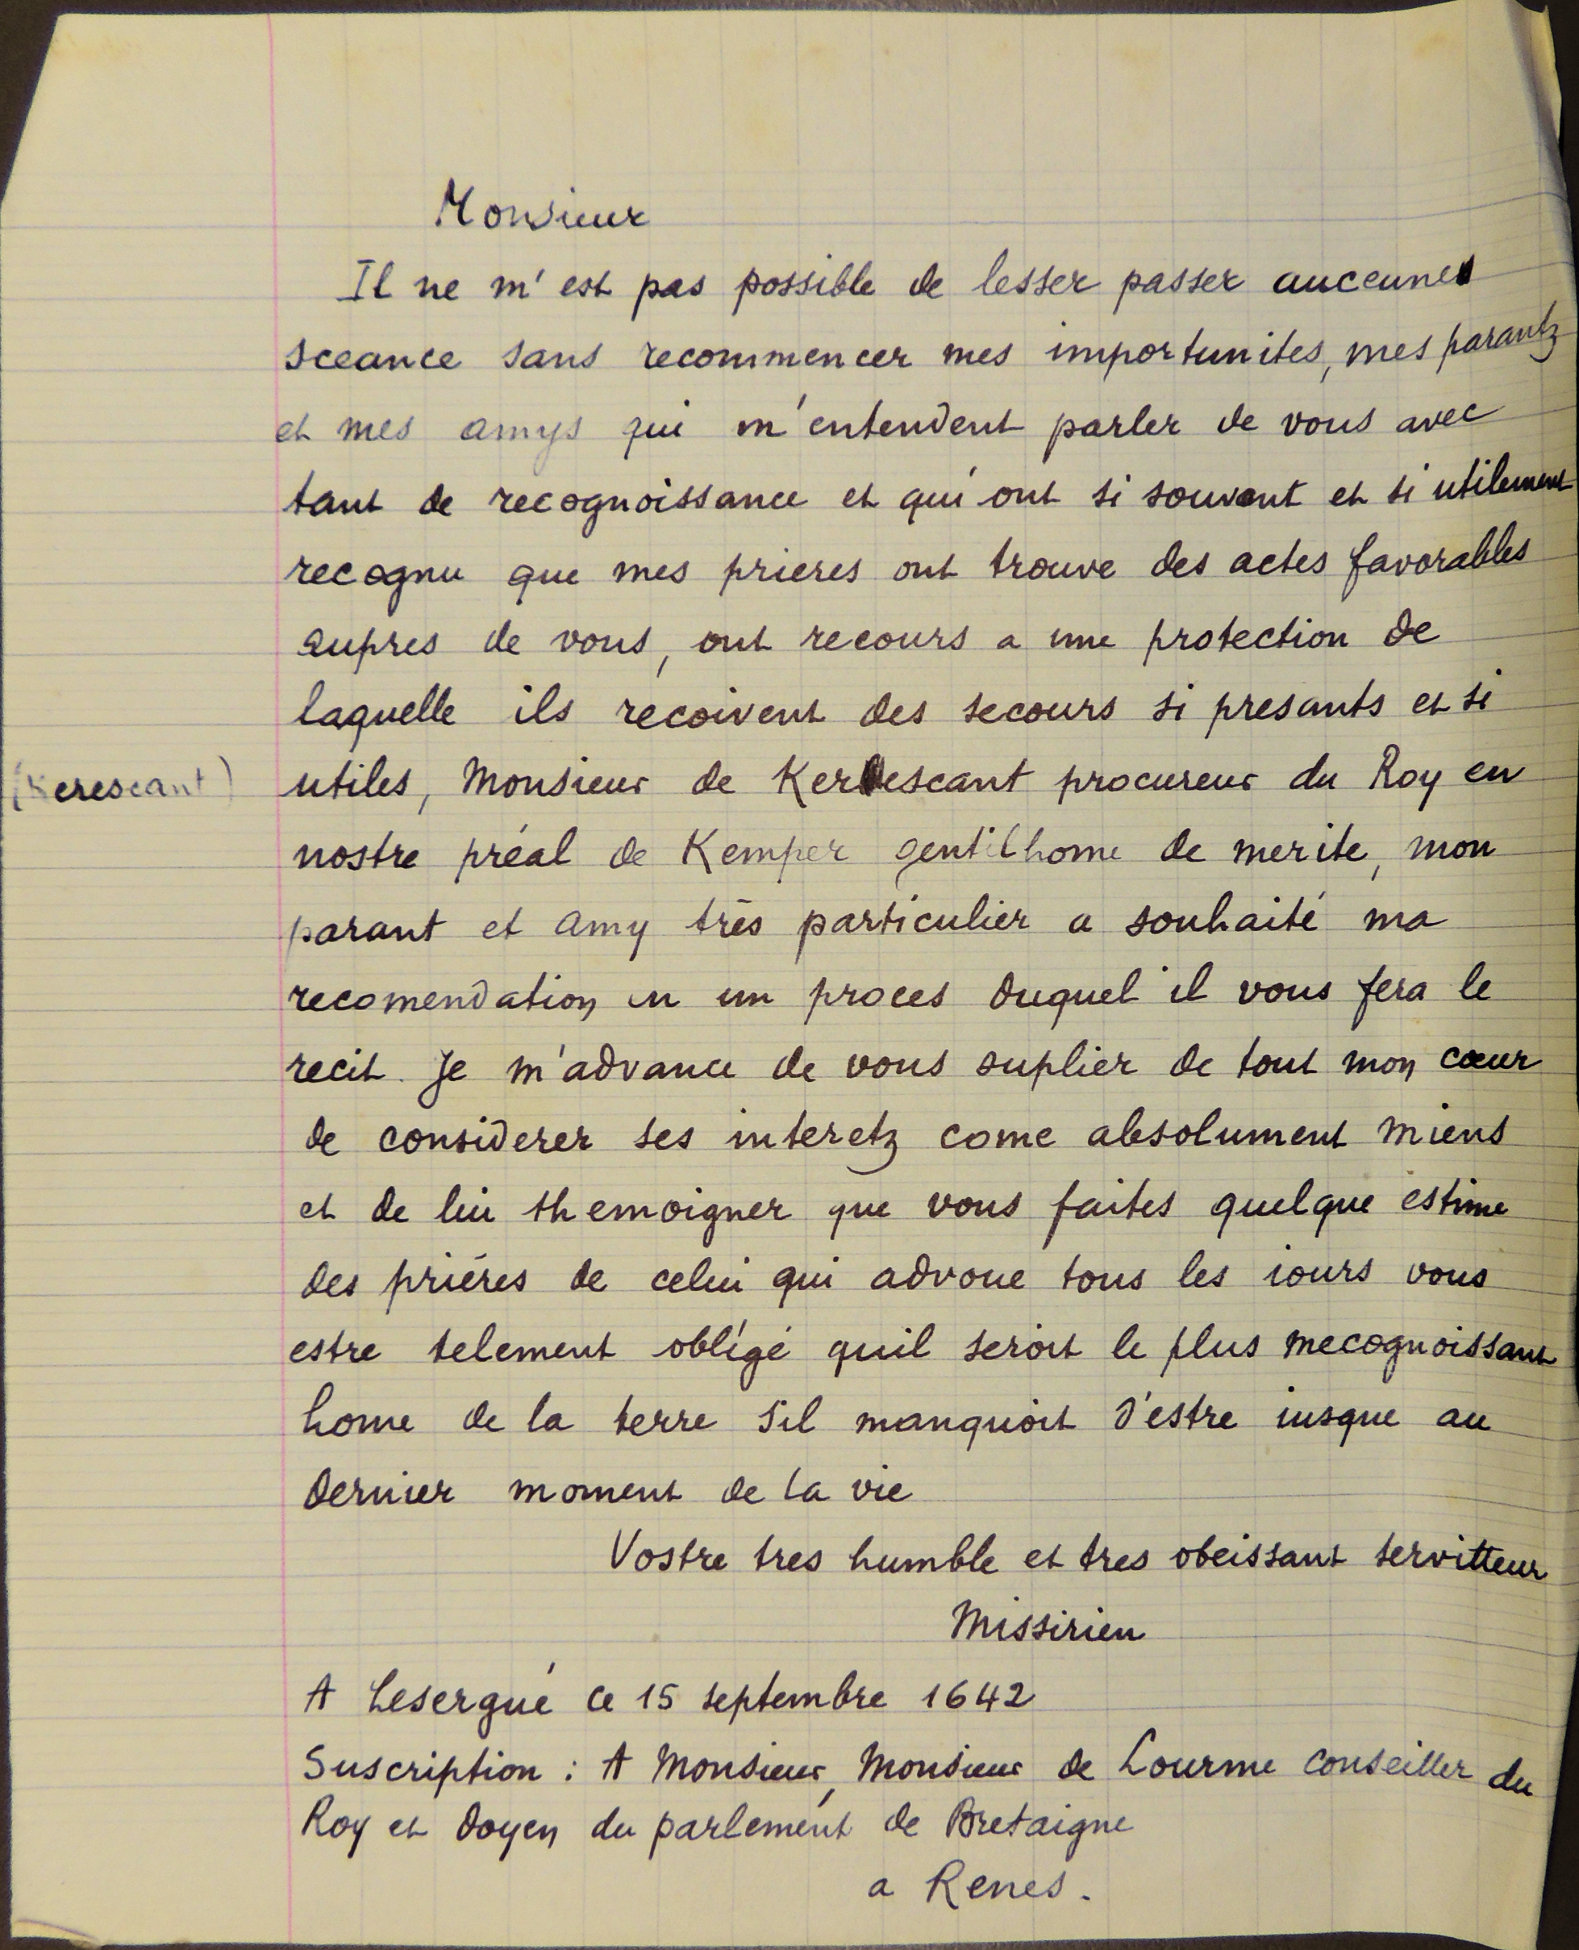 Monsieur
Il ne m'est pas possible de lesser passer auceunes
sceance sans recommencer mes importunites, mes parantz
et mes amys qui m'entendent parler de vous avec
tant de recognoissance et qui ont si souvant et si utilement
recognu que mes prieres ont trouve des actes favorables
aupres de vous, ont recours a une protection de
laquelle ils recoivent des secours si presants et si
(Kerescant) utiles, Monsieur de Kerlescant procureur du Roy en
nostre préal de Kemper gentilhome de merite, mon
parant et amy très particulier a souhaité ma
recomendation en un proces duquel il vous fera le
recit. Je m'advance de vous suplier de tout mon cœur
de considerer ses interetz come absolument miens
et de lui themoigner que vous faites quelque estime
des priéres de celui qui advoue tous les iours vous
estre telement obligé quil seroit le plus mecognoissant
home de la terre s'il manquoit d'estre iusque au
dernier moment de la vie
Vostre tres humble et tres obeissant servitteur
Missirien
A Lesergué ce 15 septembre 1642
Suscription : A Monsieur, Monsieur de Lourme conseiller du
Roy et doyen du parlement de Bretaigne
a Renes.